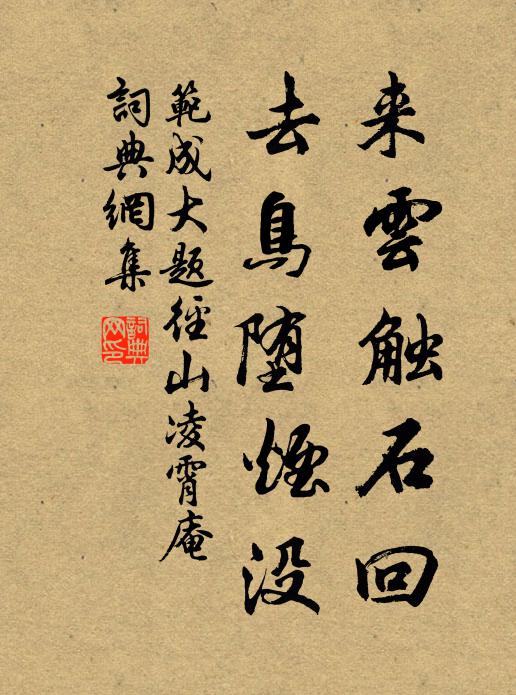 来雲触石回
去鳥堕煙没
範成大題徑山凌霄庵
詞典網集
詞典網印